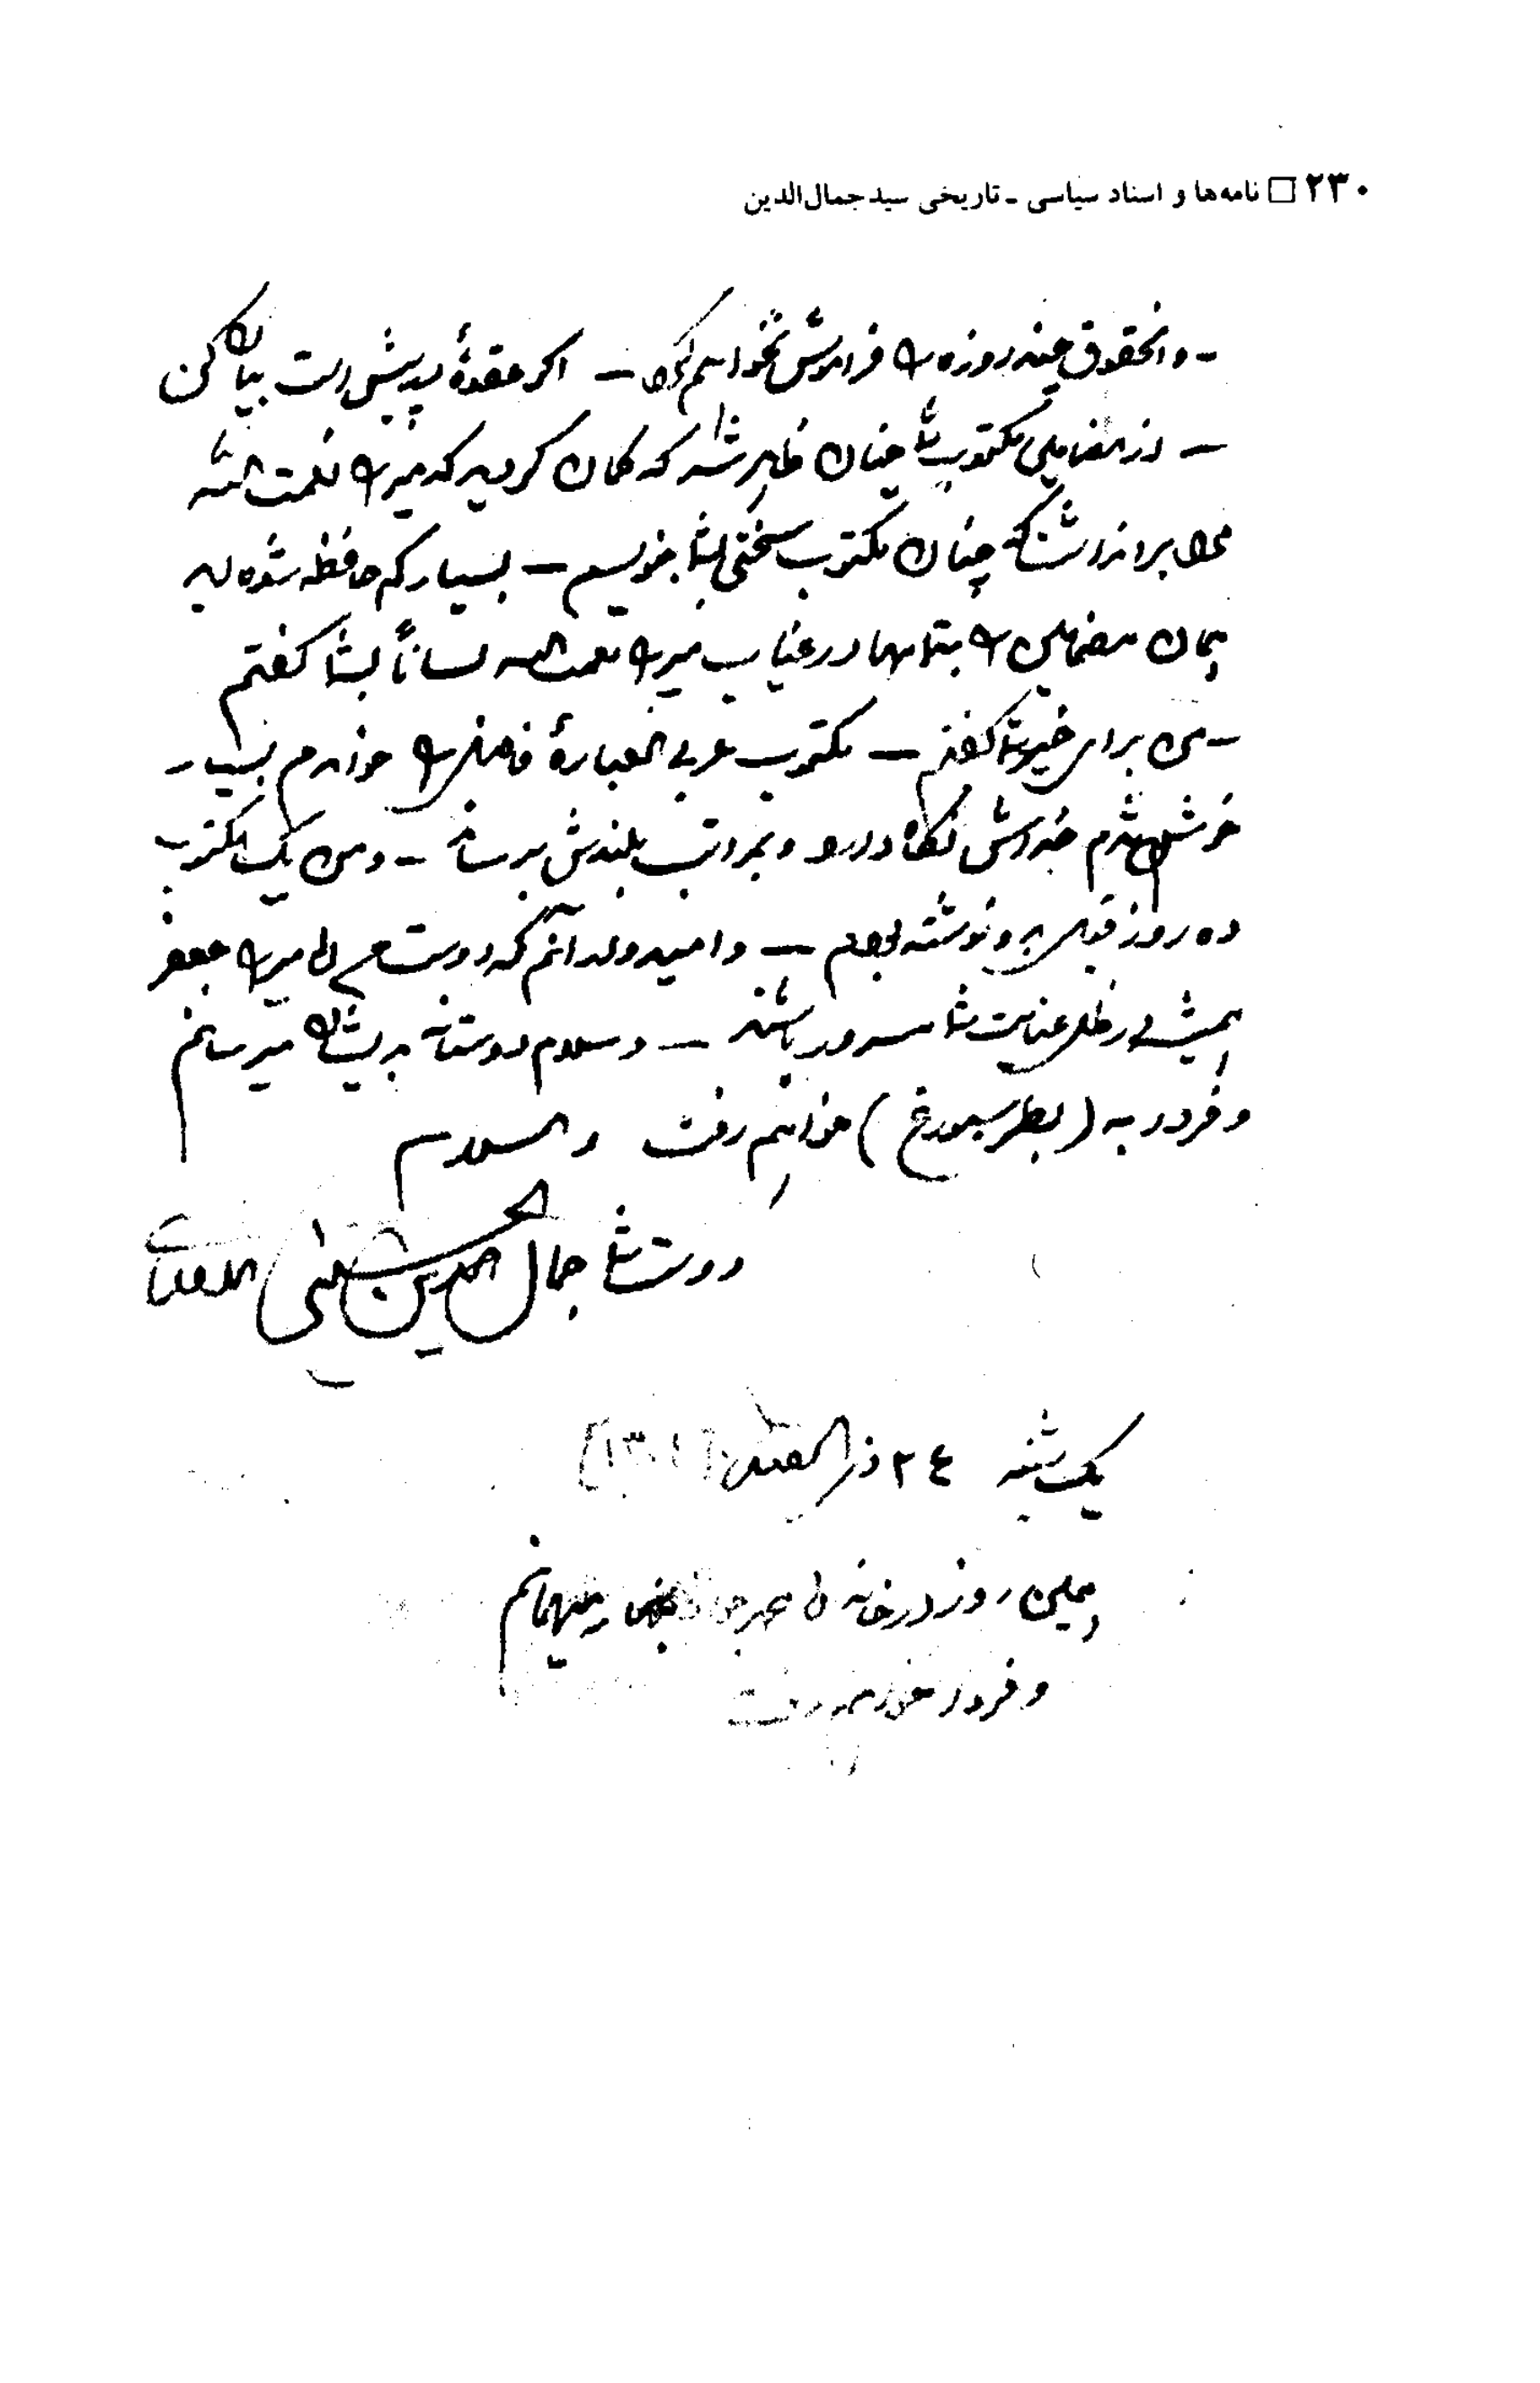 ۲۳۰ □ نامه‌ها و اسناد سیاسی ـ تاریخی سید جمال‌الدین
ـ و آنحقوق چند روزه را فراموش نخواهم کرد ـ اکر عقدهٔ در پیش است بیان کن
ـ از مضامین مکتوب شما چنان ظاهر شد که کمان کردید که میرزا نعمت الله
مرا بر انداشتکه چنان مکتوب سختی بشما بنویسم ـ بسیار کم حافظه شده اید
همان مضامین را بتمامها در غیاب میرزا نعمت الله لساناً بشما کفتم
ـ من برای خیر شما کفتم ـ مکتوب عربی العبارهٔ فاضل را خواندم بسیار
خوش شدم خداش نکاه دارد و بمراتب بلندش برساند ـ و من یک مکتوب
ده روز قبل باو نوشته بودم ـ و امیدوار آنم که دوست میرزا جعفر
همیشه در ظل عنایت شما مسرور باشند ـ و سلام دوستانه بر ایشان میرسانم
و فردا به (بطرسبورغ) خواهم رفت والسلام
دوست شما جمال الدین الحسینی
یک شنبه ٢٤ ذی القعده
همین روز در خانه میهمانم
و فردا خواهم رفت